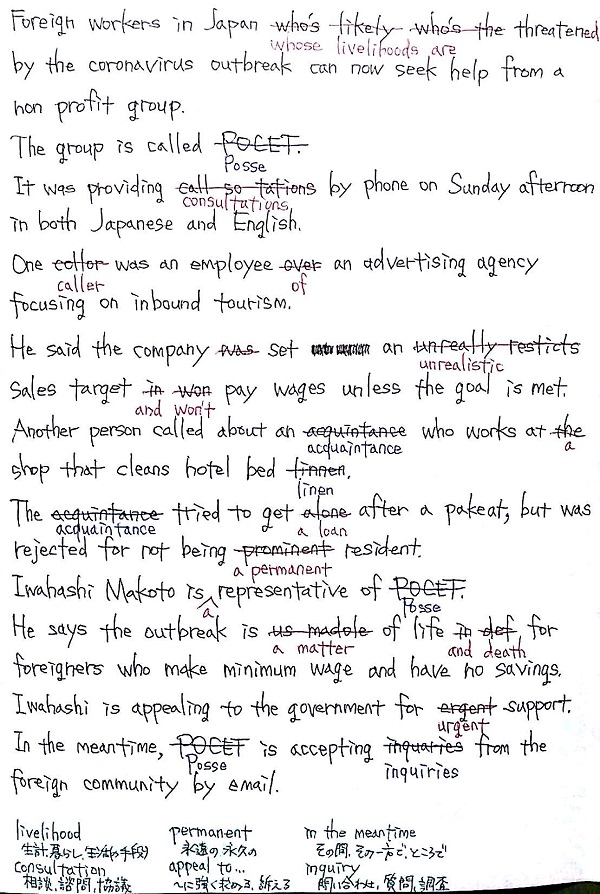 Foreign workers in Japan who's likely who's the threatened
whose livelihoods are
by the coronavirus outbreak can now seek help from a
non profit group.
The group is called POCET.
Posse
It was providing call so tations by phone on Sunday afternoon
consultations
in both Japanese and English.
One collor was an employee over an advertising agency
caller of
focusing on inbound tourism.
He said the company was set an unreally resticts
unrealistic
sales target in won pay wages unless the goal is met.
and won't
Another person called about an acquintance who works at the
acquaintance a
shop that cleans hotel bed linnen.
linen
The acquintance tried to get alone after a pakeat, but was
acquaintance a loan
rejected for not being prominent resident.
a permanent
Iwahashi Makoto is representative of POCET.
a Posse
He says the outbreak is us madole of life in def for
a matter and death
foreigners who make minimum wage and have no savings.
Iwahashi is appealing to the government for ergent support.
urgent
In the meantime, POCET is accepting inquaries from the
Posse inquiries
foreign community by email.
livelihood permanent in the meantime
生計, 暮らし, 生活の手段 永遠の 永久の その間, その一方で, ところで
consultation appeal to... inquiry
相談, 諮問, 協議 〜に強く求める, 訴える 問い合わせ, 質問, 調査